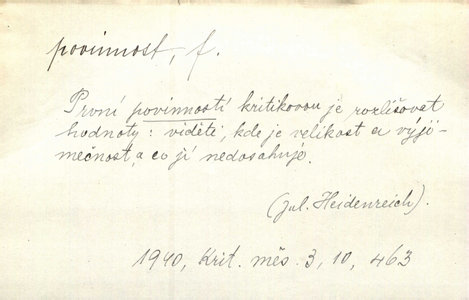 povinnost, f.
První povinností kritikovou je rozlišovat
hodnoty: viděti, kde je velikost a výji-
mečnost, a co jí nedosahuje.
(Jul. Heidenreich).
1940, Krit. měs. 3, 10, 463